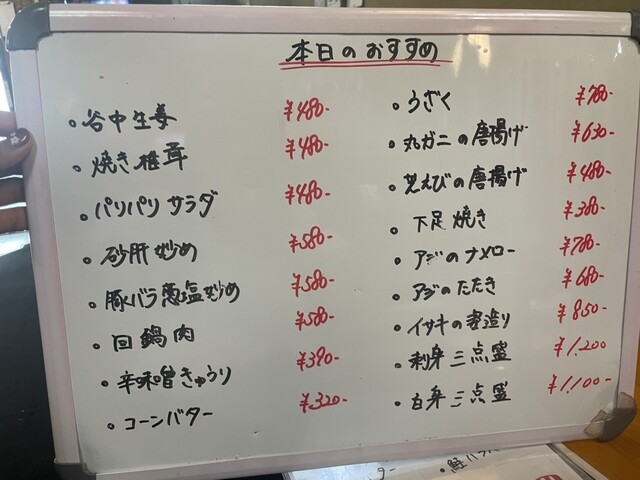 本日のおすすめ
・谷中生姜 ¥480-
・焼き椎茸 ¥480-
・パリパリサラダ ¥480-
・砂肝炒め ¥580-
・豚バラ葱塩炒め ¥580-
・回鍋肉 ¥580-
・辛味噌きゅうり ¥390-
・コーンバター ¥320-
・うざく ¥780-
・丸ガニの唐揚げ ¥630-
・芝えびの唐揚げ ¥480-
・下足焼き ¥380-
・アジのナメロー ¥780-
・アジのたたき ¥680-
・イサキの姿造り ¥850-
・刺身三点盛 ¥1,200
・白身三点盛 ¥1,100-